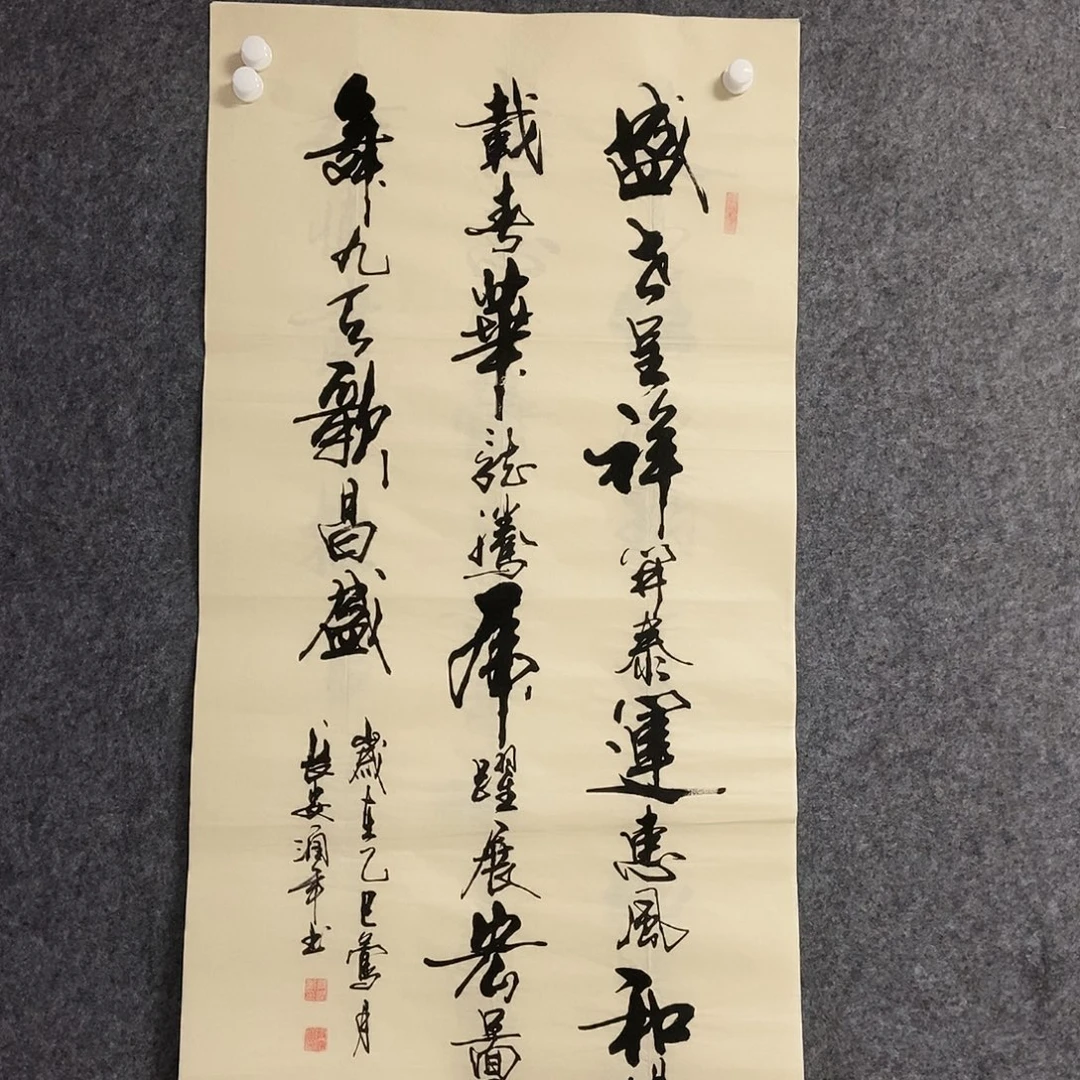 盛世呈祥開泰運惠風和
載春華龍騰虎躍展宏圖
舞九天歌昌盛
歲在乙巳鶯月
長安潤年书